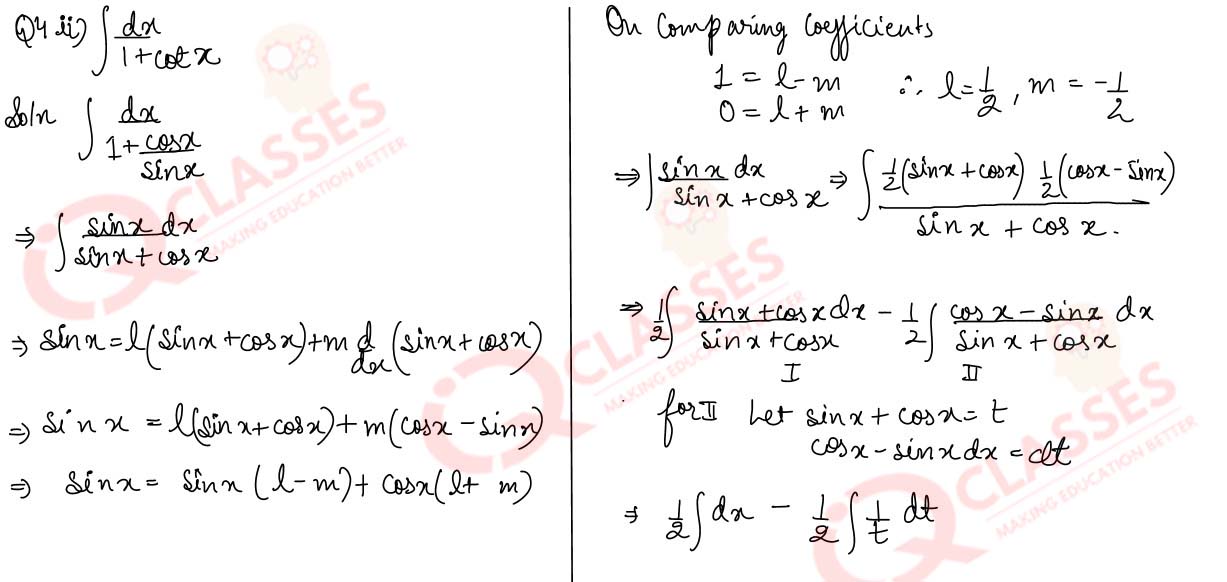 Q4 ii) ∫ dx / (1 + cot x)
Soln ∫ dx / (1 + cosx/sinx)
⇒ ∫ sinx dx / (sinx + cosx)
⇒ sinx = l(sinx + cosx) + m d/dx (sinx + cosx)
⇒ sinx = l(sinx + cosx) + m(cosx - sinx)
⇒ sinx = sinx (l - m) + cosx(l + m)
On Comparing Coefficients
1 = l - m
0 = l + m ∴ l = 1/2, m = -1/2
⇒ ∫ sinx dx / (sinx + cosx) ⇒ ∫ 1/2(sinx + cosx) 1/2(cosx - sinx) / (sinx + cosx).
⇒ 1/2 ∫ (sinx + cosx dx) / (sinx + cosx) - 1/2 ∫ (cosx - sinx) / (sinx + cosx) dx
I II
for II Let sinx + cosx = t
cosx - sinx dx = dt
⇒ 1/2 ∫ dx - 1/2 ∫ 1/t dt
IQ CLASSES
MAKING EDUCATION BETTER
IQ CLASSES
MAKING EDUCATION BETTER
IQ CLASSES
MAKING EDUCATION BETTER